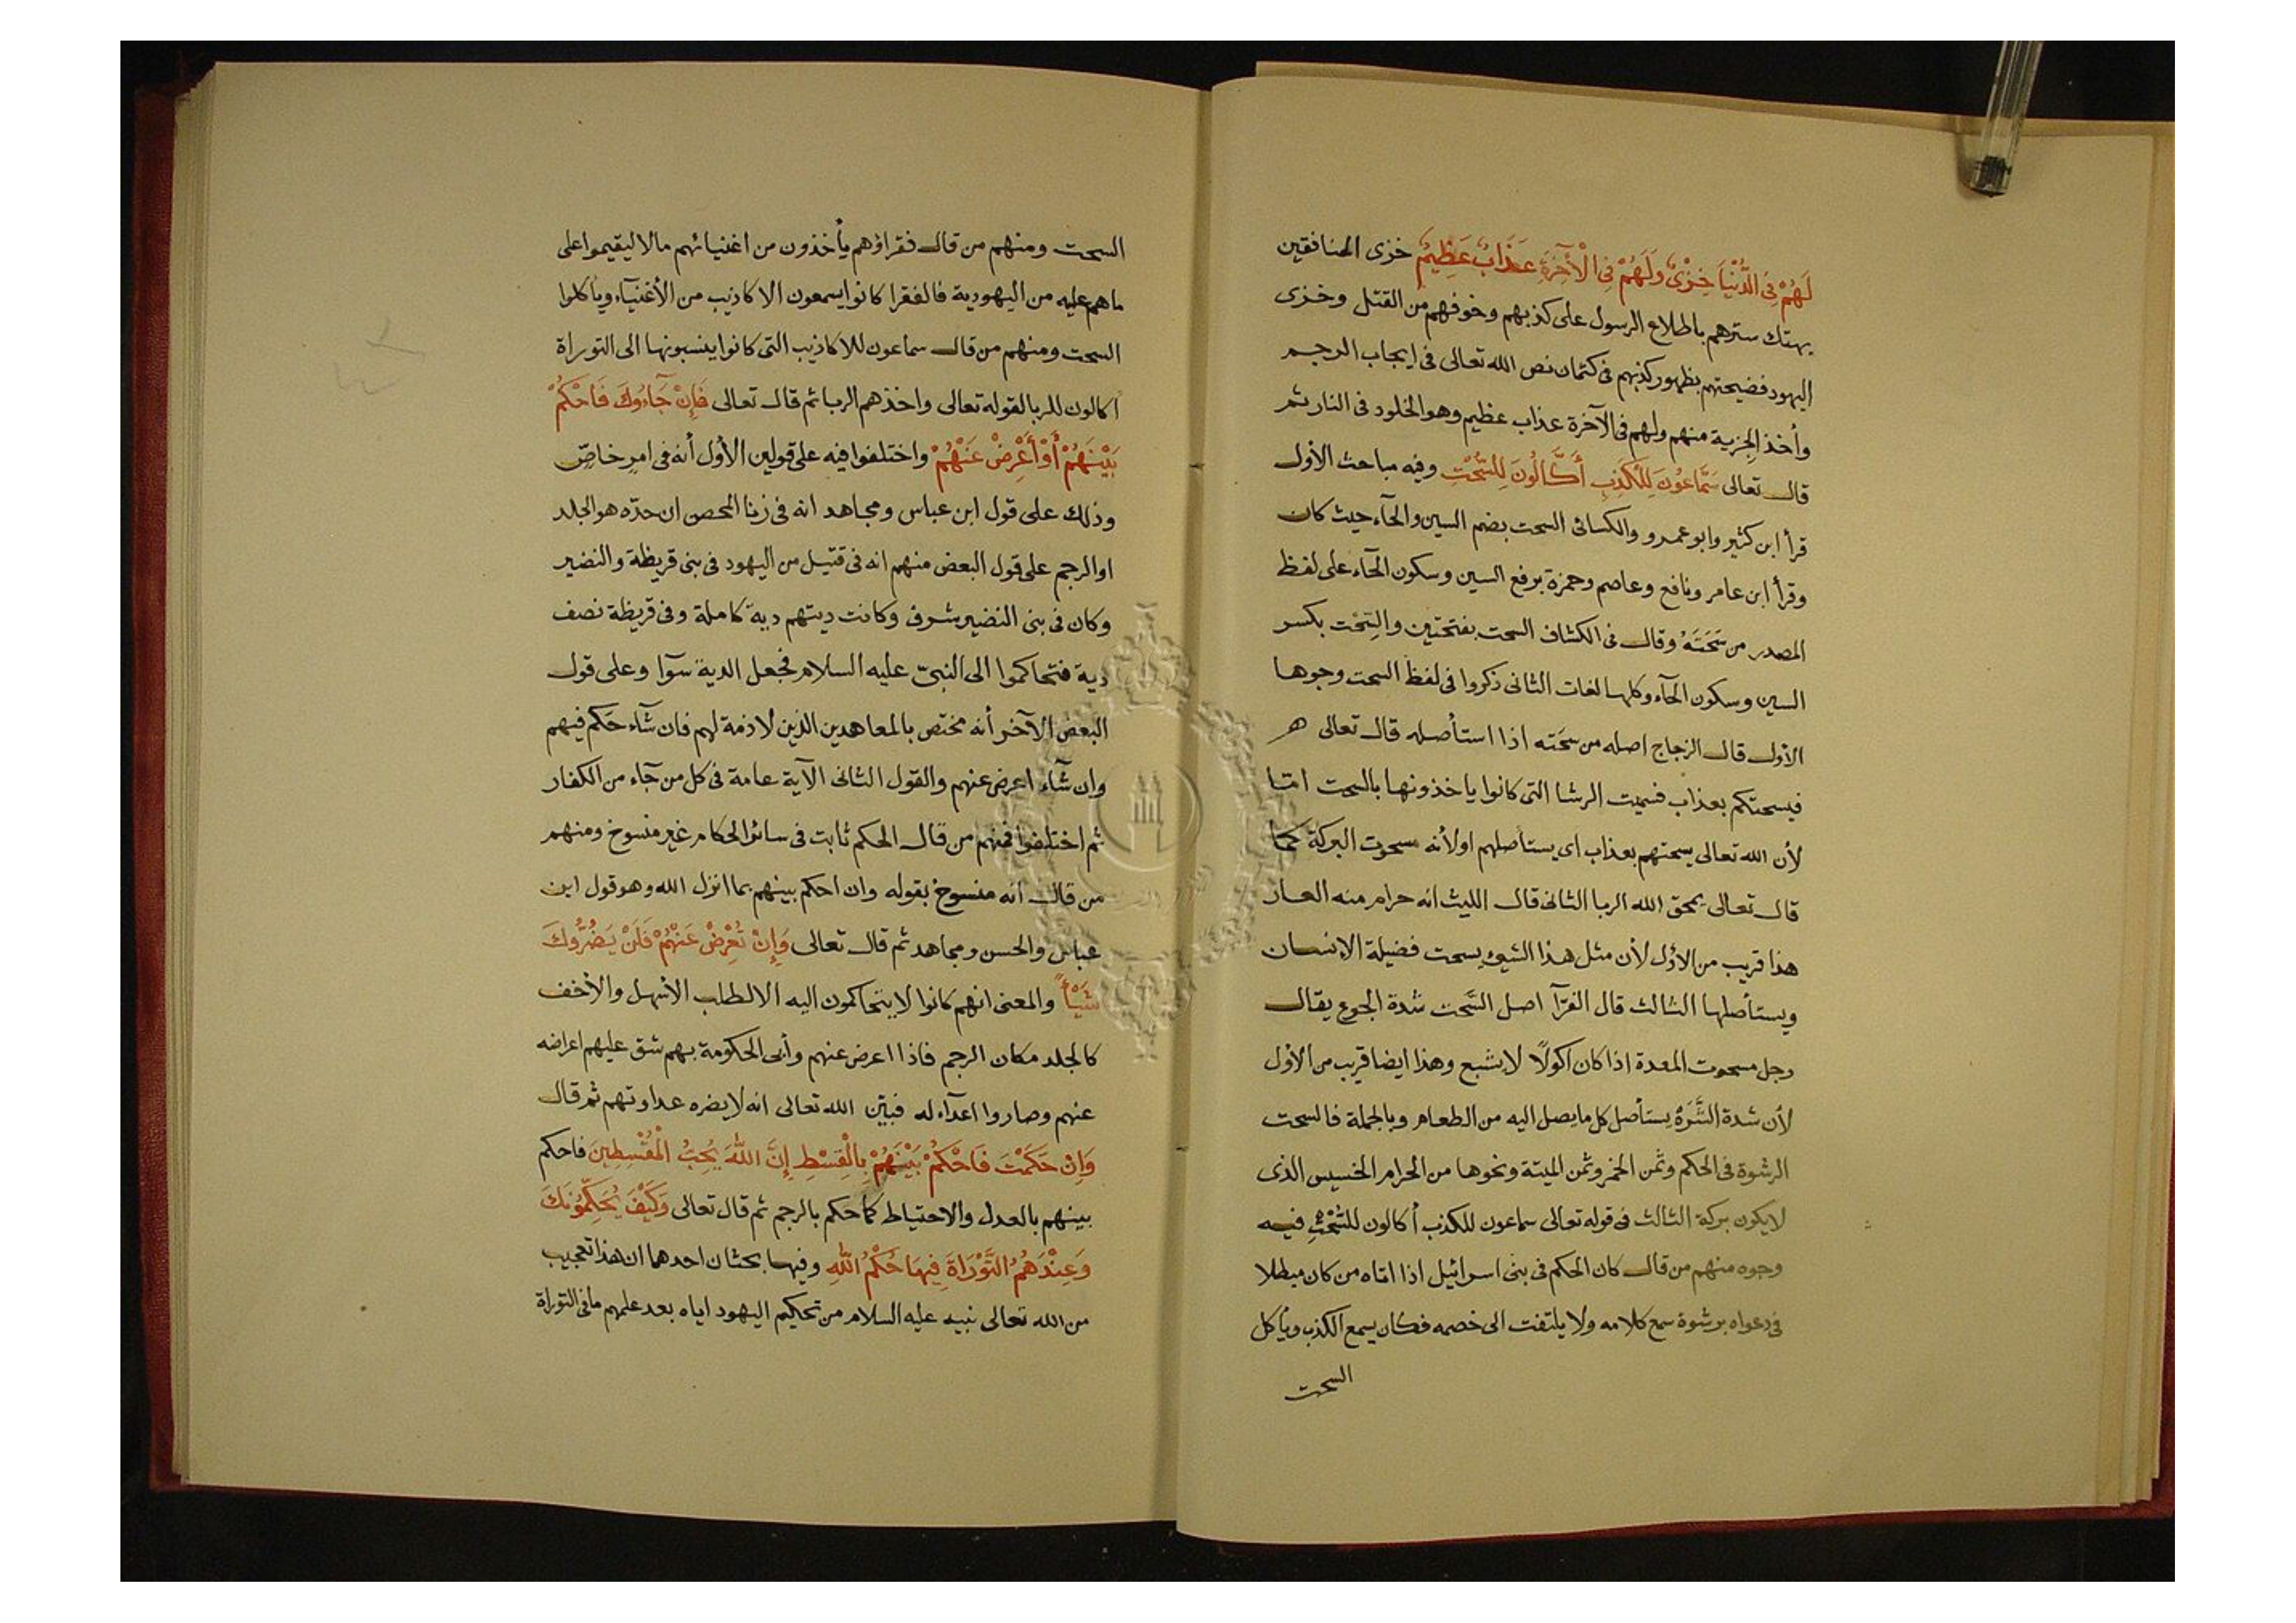 لَهُمْ فِي الدُّنْيَا خِزْيٌ وَلَهُمْ فِي الْآخِرَةِ عَذَابٌ عَظِيمٌ خزى المنافقين
بهتك سترهم باطلاع الرسول على كذبهم وخوفهم من القتل وخزى
اليهود فضيحتهم بظهور كذبهم فى كتمان نص الله تعالى فى ايجاب الرجم
وأخذ الجزية منهم ولهم فى الآخرة عذاب عظيم وهو الخلود فى النار ثم
قال تعالى سَمَّاعُونَ لِلْكَذِبِ أَكَّالُونَ لِلسُّحْتِ وفيه مباحث الأول
قرأ ابن كثير وابو عمرو والكسائى السحت بضم السين والحآء حيث كان
وقرأ ابن عامر ونافع وعاصم وحمزة برفع السين وسكون الحآء على لفظ
المصدر من سَحَتَهُ وقال فى الكشاف السحت بفتحتين والسِحْت بكسر
السين وسكون الحآء وكلها لغات الثانى ذكروا فى لفظ السحت وجوها
الأول قال الزجاج اصله من سحَته اذا استأصله قال تعالى هـ
فيسحتكم بعذاب فسميت الرشا التى كانوا ياخذونها بالسحت امّا
لأن الله تعالى يسحتهم بعذاب اى يستأصلهم اولأنه مسحوت البركة كما
قال تعالى يمحق الله الربا الثانى قال الليث انه حرام منه العار
هذا قريب من الاوّل لأن مثل هذا الشئ يسحت فضيلة الإنسان
ويستأصلها الثالث قال الفرّآ اصل السَّحت شدة الجوع يقال
رجل مسحوت المعدة اذا كان اكولًا لا يشبع وهذا ايضا قريب من الأول
لأن شدة الشَّرَهْ يستأصل كل ما يصل اليه من الطعام وبالجملة فالسحت
الرشوة فى الحكم وثمن الخمر وثمن الميتة ونحوها من الحرام الخسيس الذى
لا يكون بركة الثالث فى قوله تعالى سماعون للكذب أكالون للسُّحْتِ فيه
وجوه منهم من قال كان الحكم فى بنى اسرائيل اذا اتاه من كان مبطلا
فى دعواه برشوة سمع كلامه ولا يلتفت الى خصمه فكان يسمع الكذب ويأكل
السحت
السحت ومنهم من قال فقراؤهم يأخذون من اغنيائهم مالا ليقيموا على
ماهم عليه من اليهودية فالفقرا كانوا يسمعون الاكاذيب من الأغنيآء ويأكلوا
السحت ومنهم من قال سماعون للاكاذيب التى كانوا ينسبونها الى التوراة
اكالون للربا لقوله تعالى واخذهم الربا ثم قال تعالى فَإِنْ جَآءُوكَ فَاحْكُمْ
بَيْنَهُمْ أَوْ أَعْرِضْ عَنْهُمْ واختلفوا فيه على قولين الأول أنه فى امرٍ خاصّ
وذلك على قول ابن عباس ومجاهد انه فى زنا المحصن ان حدّه هو الجلد
او الرجم على قول البعض منهم انه فى قتيل من اليهود فى بنى قريظة والنضير
وكان فى بنى النضير شرف وكانت ديتهم دية كاملة وفى قريظة نصف
دية فتحاكموا الى النبىّ عليه السلام فجعل الدية سوآا وعلى قول
البعض الآخر أنه مختص بالمعاهدين الذين لا ذمة لهم فان شآء حَكم فيهم
وان شآء اعرض عنهم والقول الثانى الآية عامة فى كل من جآء من الكفار
ثم اختلفوا فمنهم من قال الحكم ثابت فى سائر الحكام غير منسوخ ومنهم
من قال أنه منسوخ بقوله وان احكم بينهم بما انزل الله وهو قول ابن
عباس والحسن ومجاهد ثم قال تعالى وَإِنْ تُعْرِضْ عَنْهُمْ فَلَنْ يَضُرُّوكَ
شَيْأً والمعنى انهم كانوا لا يتحاكمون اليه الا لطلب الأسهل والأخف
كالجلد مكان الرجم فاذا اعرض عنهم وأبى الحكومة بهم شق عليهم اعراضه
عنهم وصاروا اعدآء له فبيّن الله تعالى انه لا يضره عداوتهم ثم قال
وَإِنْ حَكَمْتَ فَاحْكُمْ بَيْنَهُمْ بِالْقِسْطِ إِنَّ اللّهَ يُحِبُّ الْمُقْسِطِينَ فاحكم
بينهم بالعدل والاحتياط كما حكم بالرجم ثم قال تعالى وَكَيْفَ يُحَكِّمُونَكَ
وَعِنْدَهُمُ التَّوْرَاةَ فِيهَا حُكْمُ اللّهِ وفيها بحثان احدهما ان هذا تعجيب
من الله تعالى نبيه عليه السلام من تحكيم اليهود اياه بعد علمهم ما فى التوراة